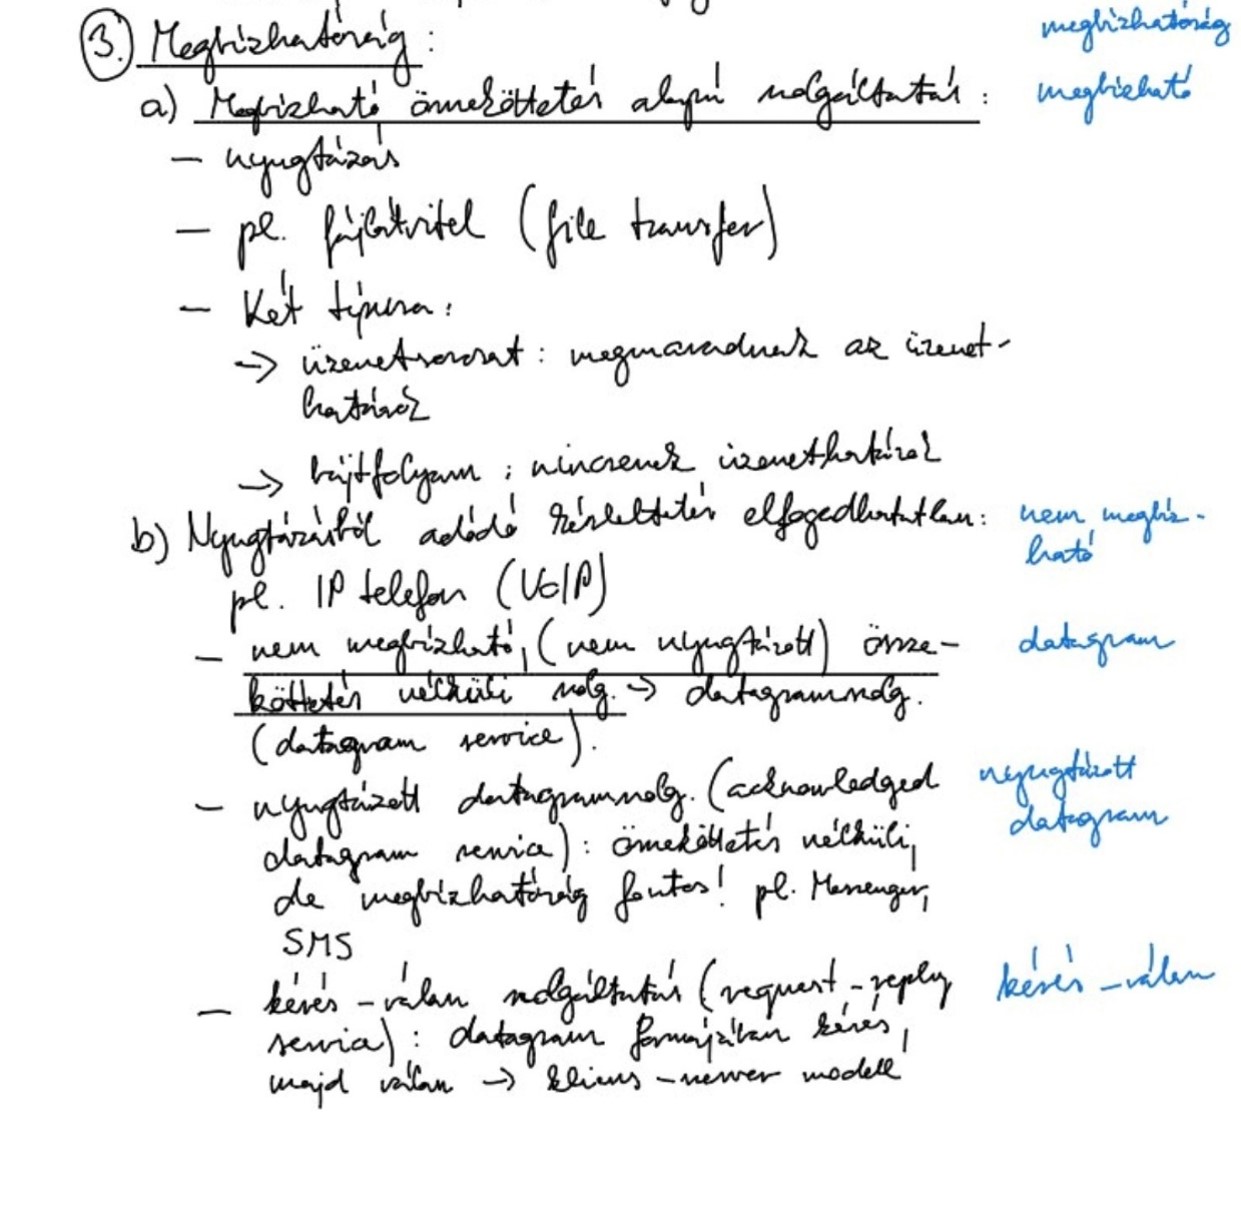 3. Megbízhatóság:
megbízhatóság
a) Megbízható összeköttetés alapú szolgáltatás:
megbízható
– nyugtázás
– pl. fájlátvitel (file transfer)
– Két típusa:
→ üzenetsorozat: megmaradnak az üzenet-
határok
→ bájtfolyam: nincsenek üzenethatárok
b) Nyugtázásból adódó késleltetés elfogadhatatlan:
nem megbíz-
ható
pl. IP telefon (VoIP)
– nem megbízható, (nem nyugtázott) össze-
datagram
köttetés nélküli szolg. → datagramszolg.
(datagram service).
– nyugtázott datagramszolg. (acknowledged
nyugtázott
datagram
datagram service): összeköttetés nélküli,
de megbízhatóság fontos! pl. Messenger,
SMS
– kérés-válasz szolgáltatás (request-reply
kérés-válasz
service): datagram formájában kérés,
majd válasz → kliens-szerver modell